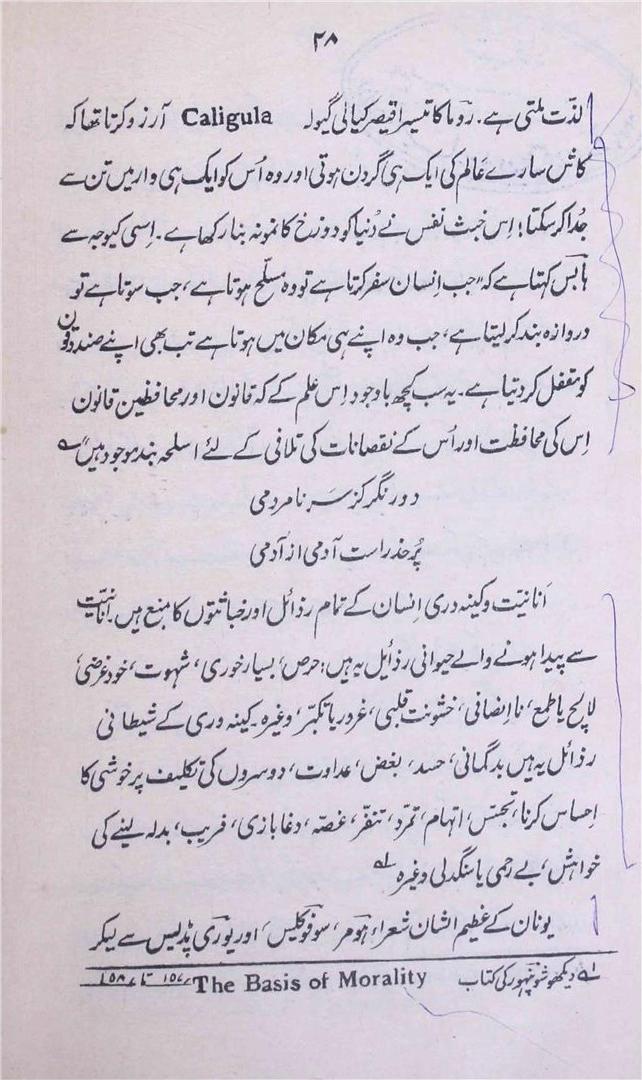 ۲۸
لذّت ملتی ہے۔ روما کا تیسرا قیصر کیالی گیولہ Caligula آرزو کرتا تھا کہ
کاش سارے عالم کی ایک ہی گردن ہوتی اور وہ اُس کو ایک ہی وار میں تن سے
جُدا کر سکتا؛ اِس خبث نفس نے دُنیا کو دوزخ کا نمونہ بنا رکھا ہے۔ اِسی کیوجہ سے
ہابس کہتا ہے کہ "جب اِنسان سفر کرتا ہے تو وہ مسلّح ہوتا ہے، جب سوتا ہے تو
دروازہ بند کر لیتا ہے، جب وہ اپنے ہی مکان میں ہوتا ہے تب بھی اپنے صندوقوں
کو مقفل کر دیتا ہے۔ یہ سب کچھ باوجود اِس علم کے کہ قانون اور محافظین قانون
اِس کی محافظت اور اُس کے نقصانات کی تلافی کے لئے اسلحہ بند موجود ہیں" ؎
دور نگر کز سرِ نامردمی
پُر حذر است آدمی از آدمی
اَنانیت وکینہ دری اِنسان کے تمام رذائل اور خباثتوں کا منبع ہیں۔ انانیت
سے پیدا ہونے والے حیوانی رذائل یہ ہیں: حرص، بسیار خوری، شہوت، خود غرضی،
لالچ یا طمع، نا اِنصافی، خشونت قلبی، غرور یا تکبّر، وغیرہ۔ کینہ وری کے شیطانی
رذائل یہ ہیں بدگمانی، حسد، بغض، عداوت، دوسروں کی تکلیف پر خوشی کا
اِحساس کرنا، تجسّس، اتہام، تمرّد، تنفّر، غصّہ، دغا بازی، فریب، بدلہ لینے کی
خواہش، بے رحمی یا سنگدلی وغیرہ ۱؎
یونان کے عظیم الشان شعراء ہومر، سوفوکلیس، اور یوری پڈیس سے لیکر
۱؎ دیکھو شوپنہور کی کتاب The Basis of Morality ۱۵۷ تا ۱۵۸